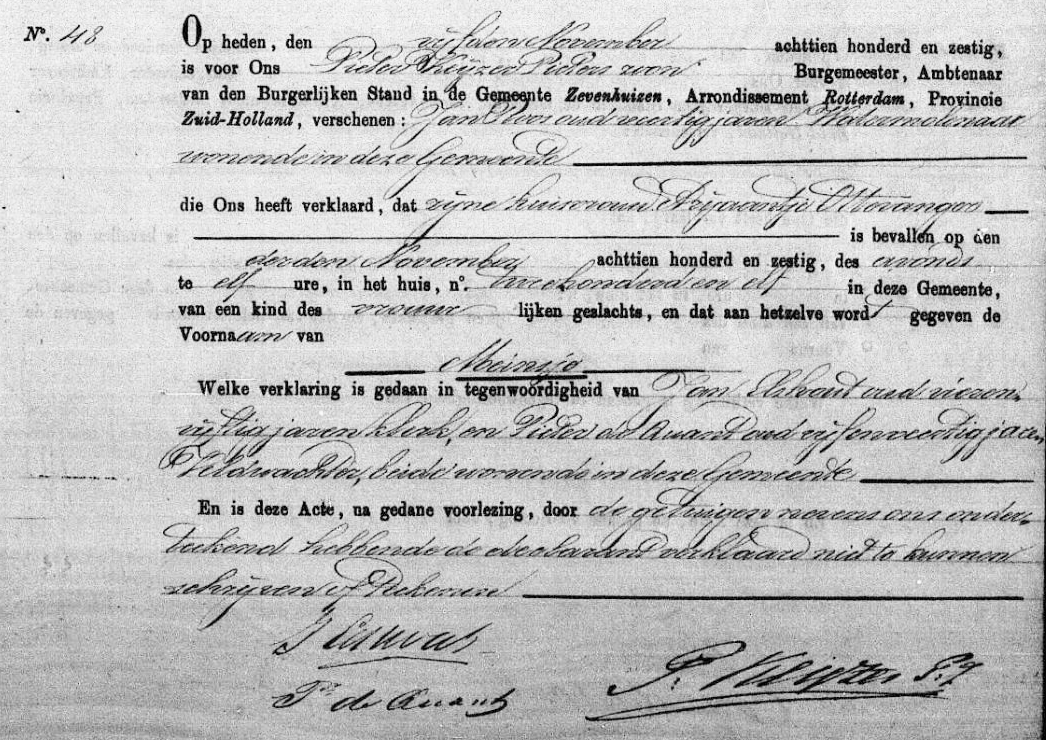 N°. 48
Op heden, den vijfden November achttien honderd en zestig,
is voor Ons Pieter Keijzer Pieters zoon Burgemeester, Ambtenaar
van den Burgerlijken Stand in de Gemeente Zevenhuizen, Arrondissement Rotterdam, Provincie
Zuid-Holland, verschenen: Jan Roos oud veertig jaren Watermolenaar
wonende in deze Gemeente
die Ons heeft verklaard, dat zijne huisvrouw Arijaantje Ottevanger
is bevallen op den
derden November achttien honderd en zestig, des avonds
te elf ure, in het huis, n°. tweehonderd en elf in deze Gemeente,
van een kind des vrouwlijken geslachts, en dat aan hetzelve wordt gegeven de
Voornaam van
Meinsje
Welke verklaring is gedaan in tegenwoordigheid van Jan oud vieren
vijftig jaren Klerk, en Pieter de Quant oud vijfenveertig jaren
Veldwachter, beide wonende in deze Gemeente
En is deze Acte, na gedane voorlezing, door de getuigen nevens ons onder-
teekend hebbende de declarant verklaard niet te kunnen
schrijven of teekenen
J
Pr de Quant P. Keijzer Pz